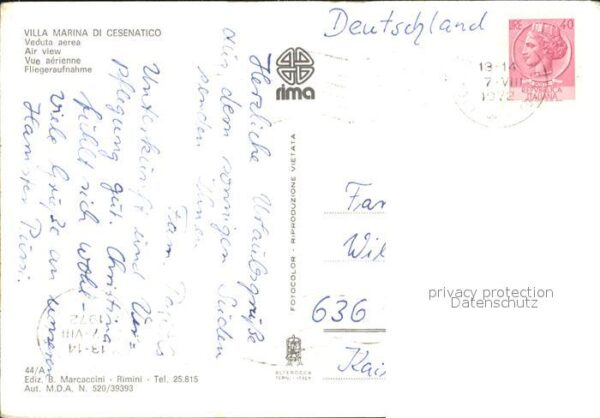 VILLA MARINA DI CESENATICO
Veduta aerea
Air view
Vue aérienne
Fliegeraufnahme
Deutschland
LIRE 40
REPVBBLICA
ITALIANA
13-14
7-VIII
1972
rima
FOTOCOLOR - RIPRODUZIONE VIETATA
Herzliche Urlaubsgrüße
aus dem sonnigen Süden
senden Ihnen
Fam.
Unterkunft und Ver-
pflegung gut. Christina
fühlt sich wohl.
Viele Grüße an unseren
Hamster Pussi.
13-14
7-VIII
1972
Fam
Wil
636
privacy protection
Datenschutz
44/A
Ediz. B. Marcaccini - Rimini - Tel. 25.815
Aut. M.D.A. N. 520/39393
ALTEROCCA
TERNI - ITALY